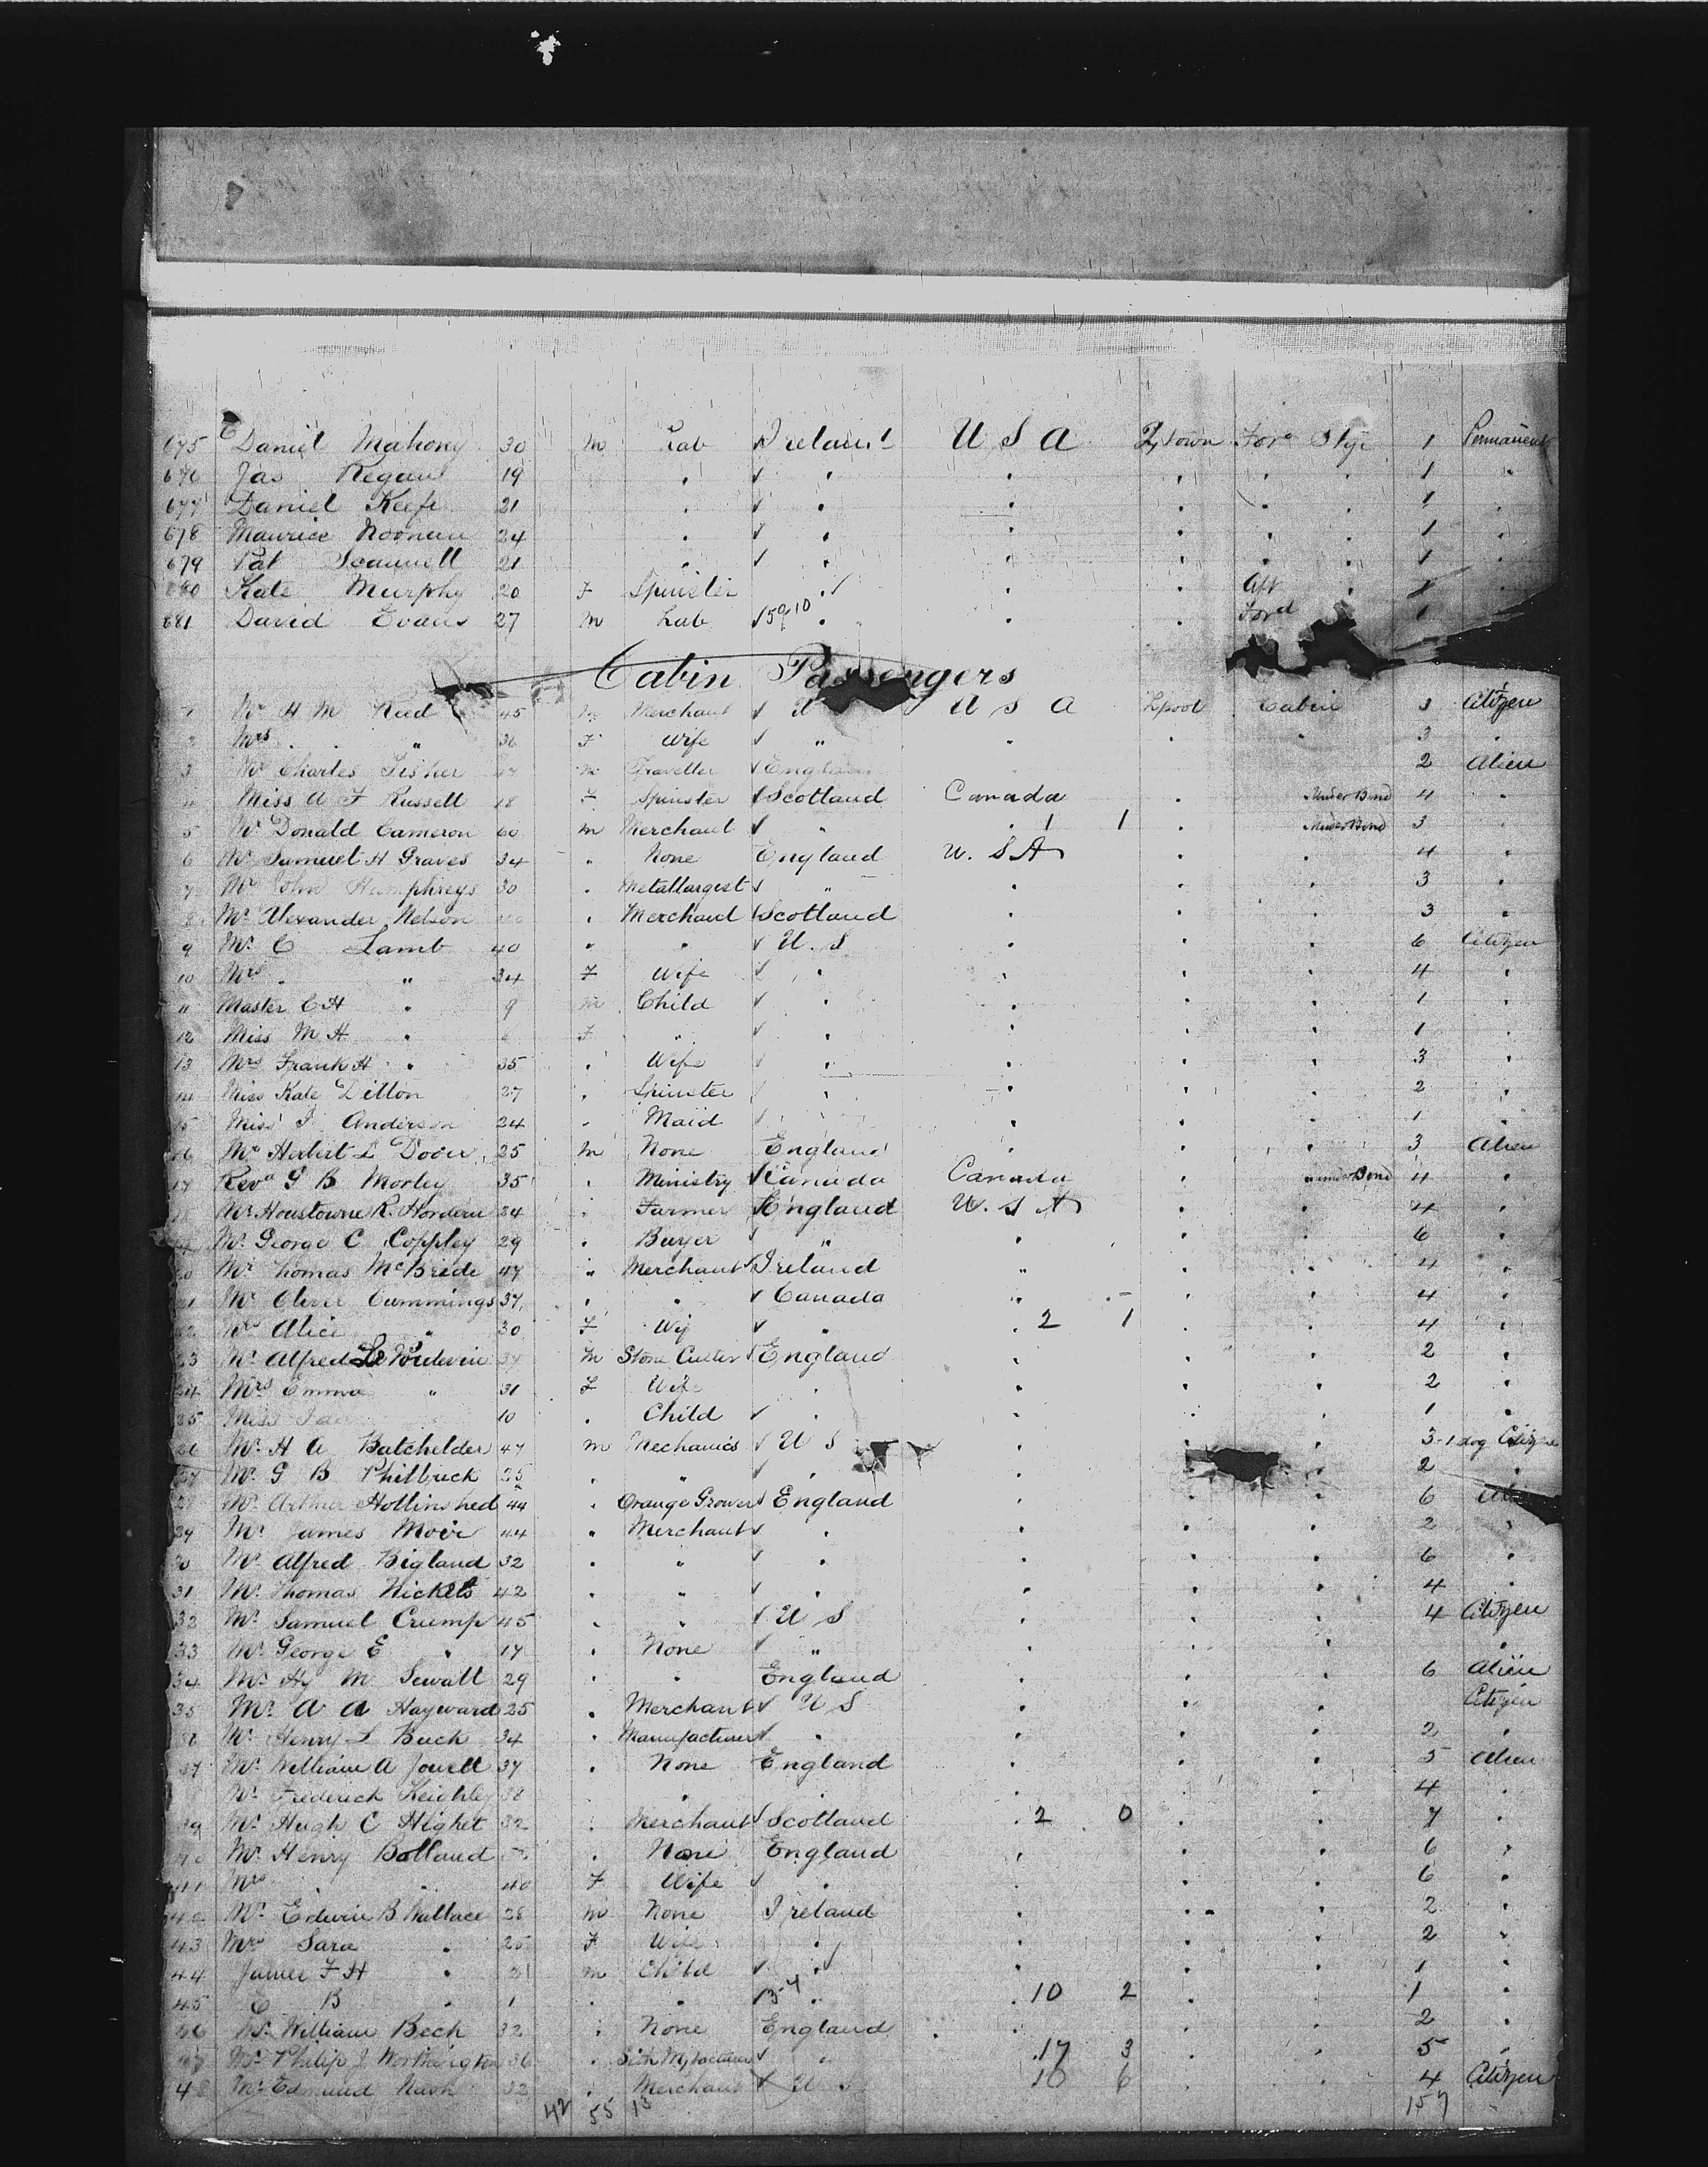 675 Daniel Mahony 30 m Lab Ireland U S A Q, town For Stge 1 Permanent
676 Jas Regan 19 " ✓ " " " " " 1 "
677 Daniel Keefe 21 " ✓ " " " " " 1 "
678 Maurice Noonan 24 " ✓ " " " " " 1 "
679 Pat Scannell 21 " ✓ " " " " " 1 "
680 Kate Murphy 20 F Spinster " ✓ " " Aft " 1
681 David Evans 27 m Lab ✓ " " " Ford 1
Cabin Passengers
Mr H M Reed 45 m Merchant ✓ U U S A Lpool Cabin 3 Citizen
2 Mrs " " 36 F Wife ✓ " " " " 3 "
3 Mr Charles Fisher m Traveller ✓ England 2 Alien
4 Miss A F Russell 18 F Spinster ✓ Scotland Canada " Under Bond 4 "
5 Mr Donald Cameron 60 m Merchant ✓ " " 1 1 " Under Bond 3 "
6 Mr Samuel H Graves 34 " None England U. S A " " 4 "
7 Mr John Humphreys 30 " Metallargest ✓ " " " " 3 "
8 Mr Alexander Nelson " Merchant ✓ Scotland " " " 3 "
9 Mr C Lamb 40 " " ✓ U. S " " " 6 Citizen
10 Mrs " " 34 F Wife ✓ " " " " 4 "
11 Master C H " 9 m Child ✓ " " " " 1 "
12 Miss M H " 6 F " ✓ " " " " 1 "
13 Mrs Frank H " 35 " Wife ✓ " " " " 3 "
14 Miss Kate Dillon 27 " Spinster ✓ " " " " 2 "
15 Miss I Anderson 24 " Maid ✓ " " " " 1 "
16 Mr Herbert L 25 m None England " " " 3 Alien
17 Revd G B Morley 35 " Ministry ✓ Canada Canada " under Bond 4 "
Mr Houstowne R. Hordern 24 " Farmer ✓ England U. S A " " 4 "
Mr George C Coppley 29 " Buyer ✓ " " " " 6 "
20 Mr Thomas McBride 47 " Merchant ✓ Ireland " " " 4 "
21 Mr Oliver Cummings 37 " " ✓ Canada " " " 4 "
22 Mrs Alice " 30 F Wif ✓ " " 2 1 " " 4 "
23 Mr Alfred Le Poidevin 34 m Stone Cutter ✓ England " " " 2 "
24 Mrs Emma " 31 F Wife " " " " 2 "
25 Miss 10 " Child ✓ " " " " 1 "
26 Mr H A Batchelder 47 m Mechanics ✓ U S " " " 3-1 dog Citizen
27 Mr G B Philbrick 25 " " ✓ " " " 2 "
28 Mr Arthur Hollinshed 44 " Orange Grower ✓ England " " " 6
29 Mr James Moir 44 " Merchant ✓ " " " " 2 "
30 Mr Alfred Bigland 32 " " ✓ " " " " 6 "
31 Mr Thomas Nickels 42 " " ✓ " " " " 4 "
32 Mr Samuel Crump 45 " " ✓ U S " " " 4 Citizen
33 Mr George E " 17 " None ✓ " " " "
34 Mr Hy M Sewall 29 " " England " " " 6 Alien
35 Mr A A Hayward 25 " Merchant ✓ U S " " " Citizen
36 Mr Henry L Buch 34 " Manufacturer ✓ " " " " 2 "
37 Mr William A Jowett 37 " None England " " " 5 Alien
Mr Frederick Keighley 38 " " " " " " 4 "
39 Mr Hugh C Highet 32 " Merchant ✓ Scotland " 2 0 " " 7 "
40 Mr Henry Bolland " None England " " " 6 "
41 Mrs " " 40 F Wife ✓ " " " " 6 "
42 Mr Edwin B. Wallace 28 m None Ireland " " " 2 "
43 Mrs Sara " 25 F Wife " " " " 2 "
44 James F H " m Child ✓ " " " " 1 "
45 E B " 1 " " " " 10 2 " " 1 "
46 Mr William Beck 32 " None England " " " 2 "
47 Mr Philip J Worthington 36 " ✓ " " 17 3 " " 5 "
48 Mr Edmund Nash 32 " Merchant ✓ U S 10 6 " " 4 Citizen
42 55 13 157